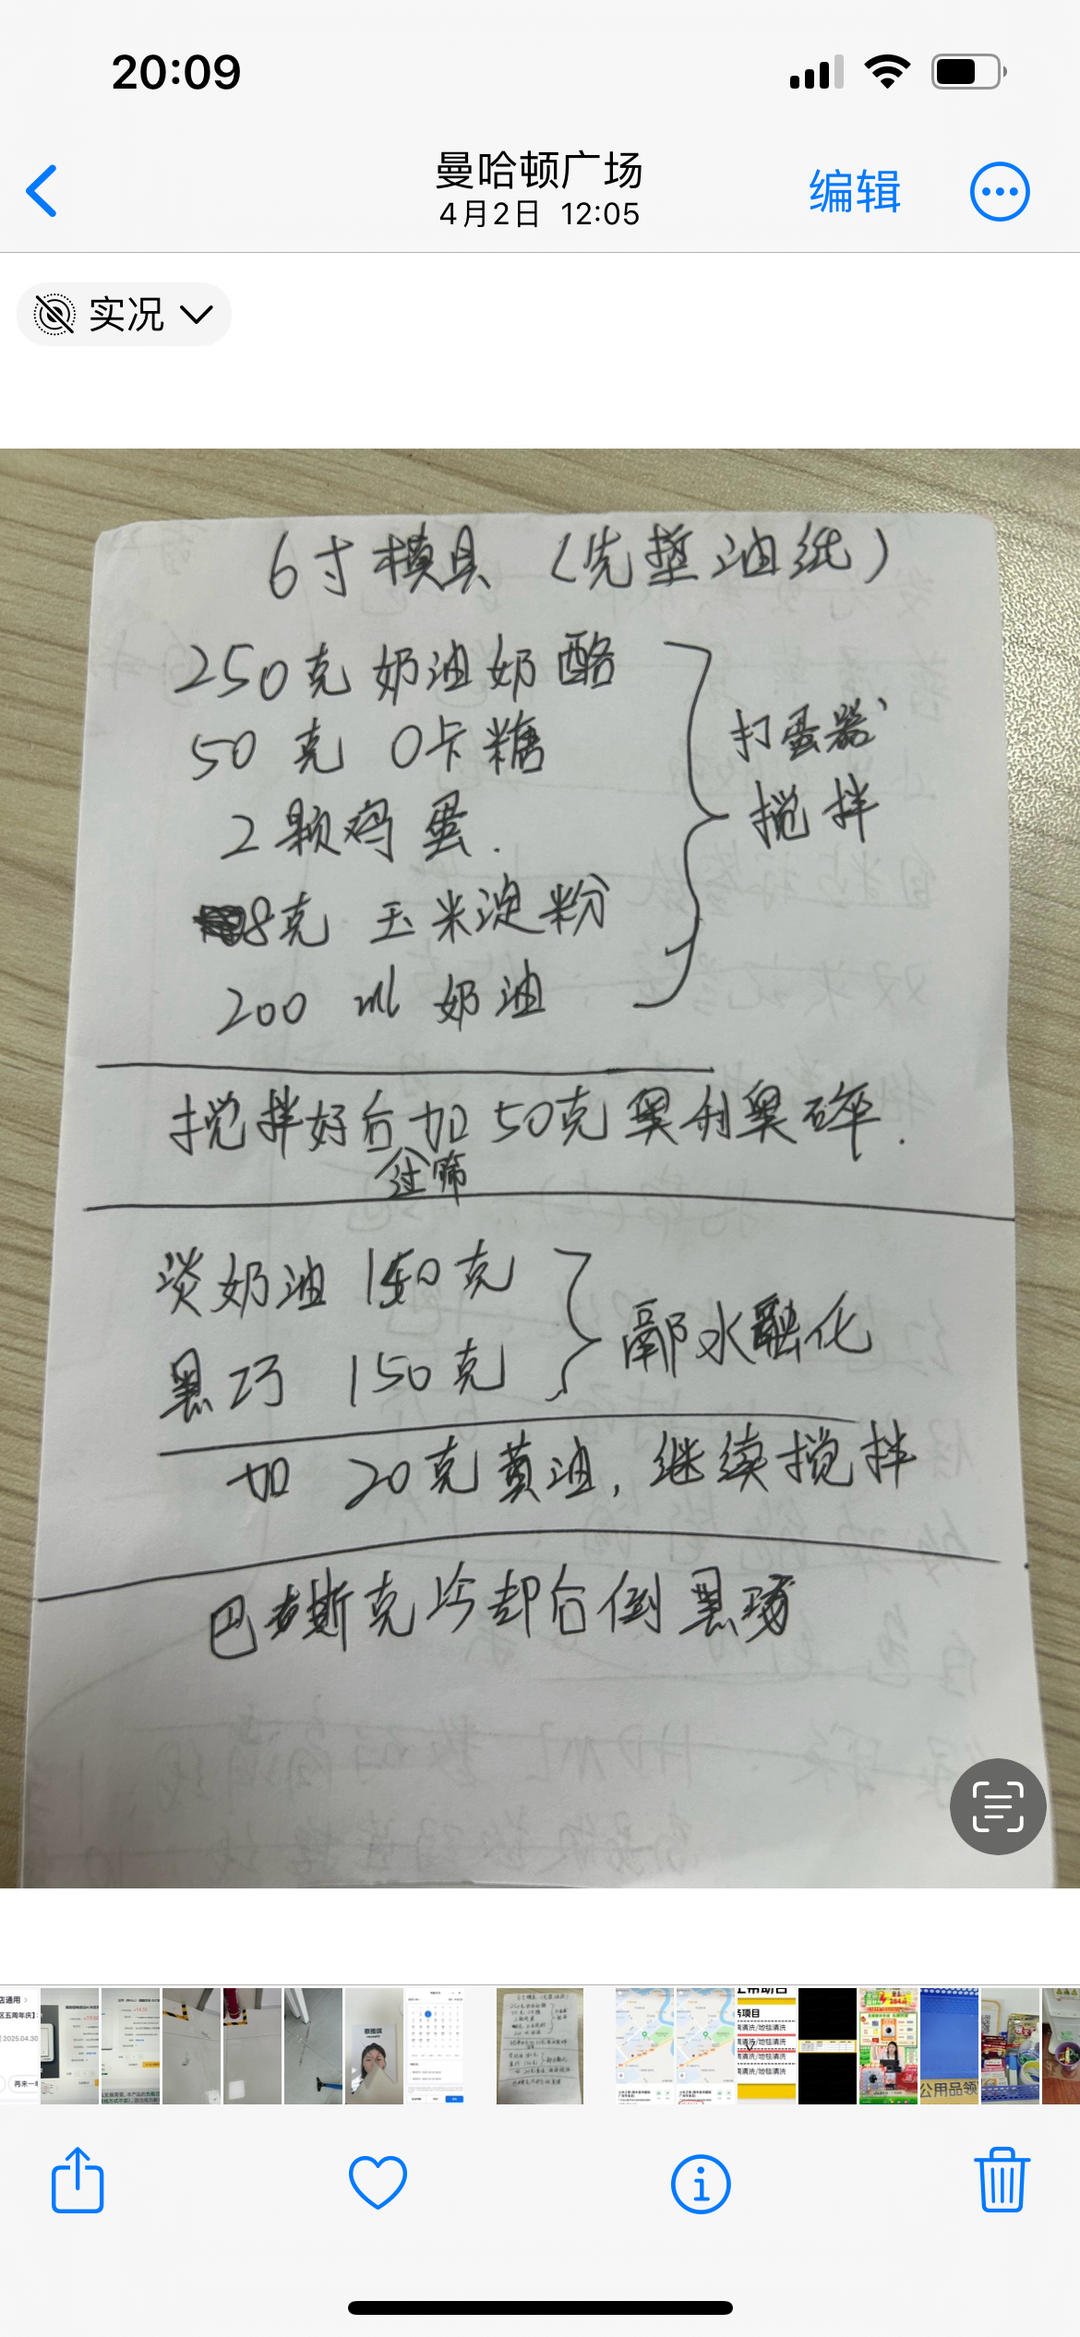 20:09
曼哈顿广场
4月2日 12:05
编辑
实况
6寸模具（先垫油纸）
250克 奶油奶酪
50克 0卡糖
2颗鸡蛋.
8克 玉米淀粉
200 ml 奶油
打蛋器
搅拌
搅拌好后加50克奥利奥碎.
过筛
淡奶油 150克
黑巧 150克
隔水融化
加 20克黄油, 继续搅拌
巴斯克冷却后倒黑巧
店通用
区五周年庆】
2025.04.30
再来一
项目
公用品领